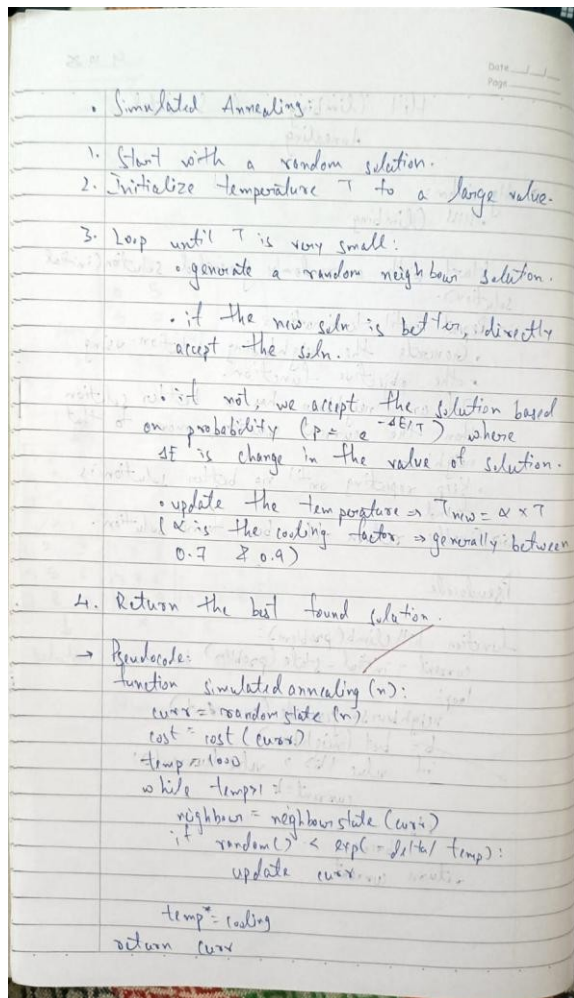 Date
Page
• Simulated Annealing:
1. Start with a random solution.
2. Initialize temperature T to a large value.
3. Loop until T is very small:
• generate a random neighbour solution.
• if the new soln is better, directly
accept the soln.
• if not, we accept the solution based
on probability (p = e^-ΔE/T) where
ΔE is change in the value of solution.
• update the temperature ⇒ Tnew = α × T
(α is the cooling factor ⇒ generally between
0.7 & 0.9)
4. Return the best found solution.
→ Pseudocode:
function simulatedannealing (n):
curr = randomstate (n)
cost = cost (curr)
temp = 1000
while temp>1 :
neighbour = neighbourstate (curr)
if random() < exp(-delta/temp):
update curr
temp*= cooling
return curr